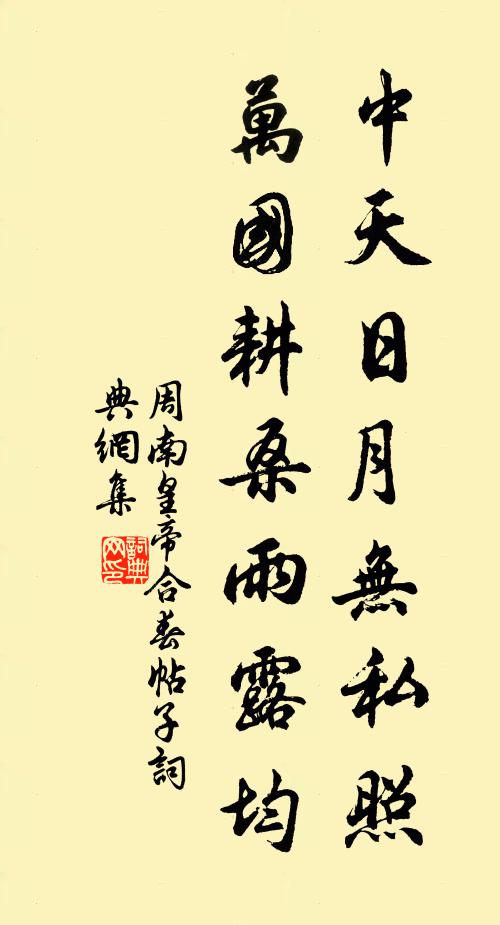 中天日月無私照
萬國耕桑雨露均
周南皇帝合春帖子詞
典網集
詞典网印